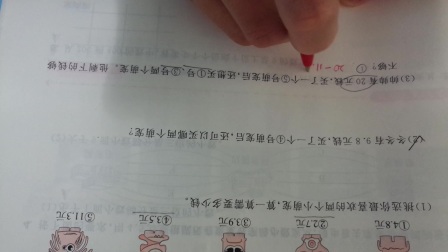 ①4.8元 ②2.7元 ③3.9元 ④3.5元 ⑤11.3元
(1)挑选你最喜欢的两个小萌宠，算一算需要多少钱。
(2)冬冬有9.8元钱，买了一个④号萌宠后，还可以买哪两个萌宠？
(3)帅帅有20元钱，买了一个⑤号萌宠后，还想买①号、③号两个萌宠，他剩下的钱够
不够？ ① 20-11